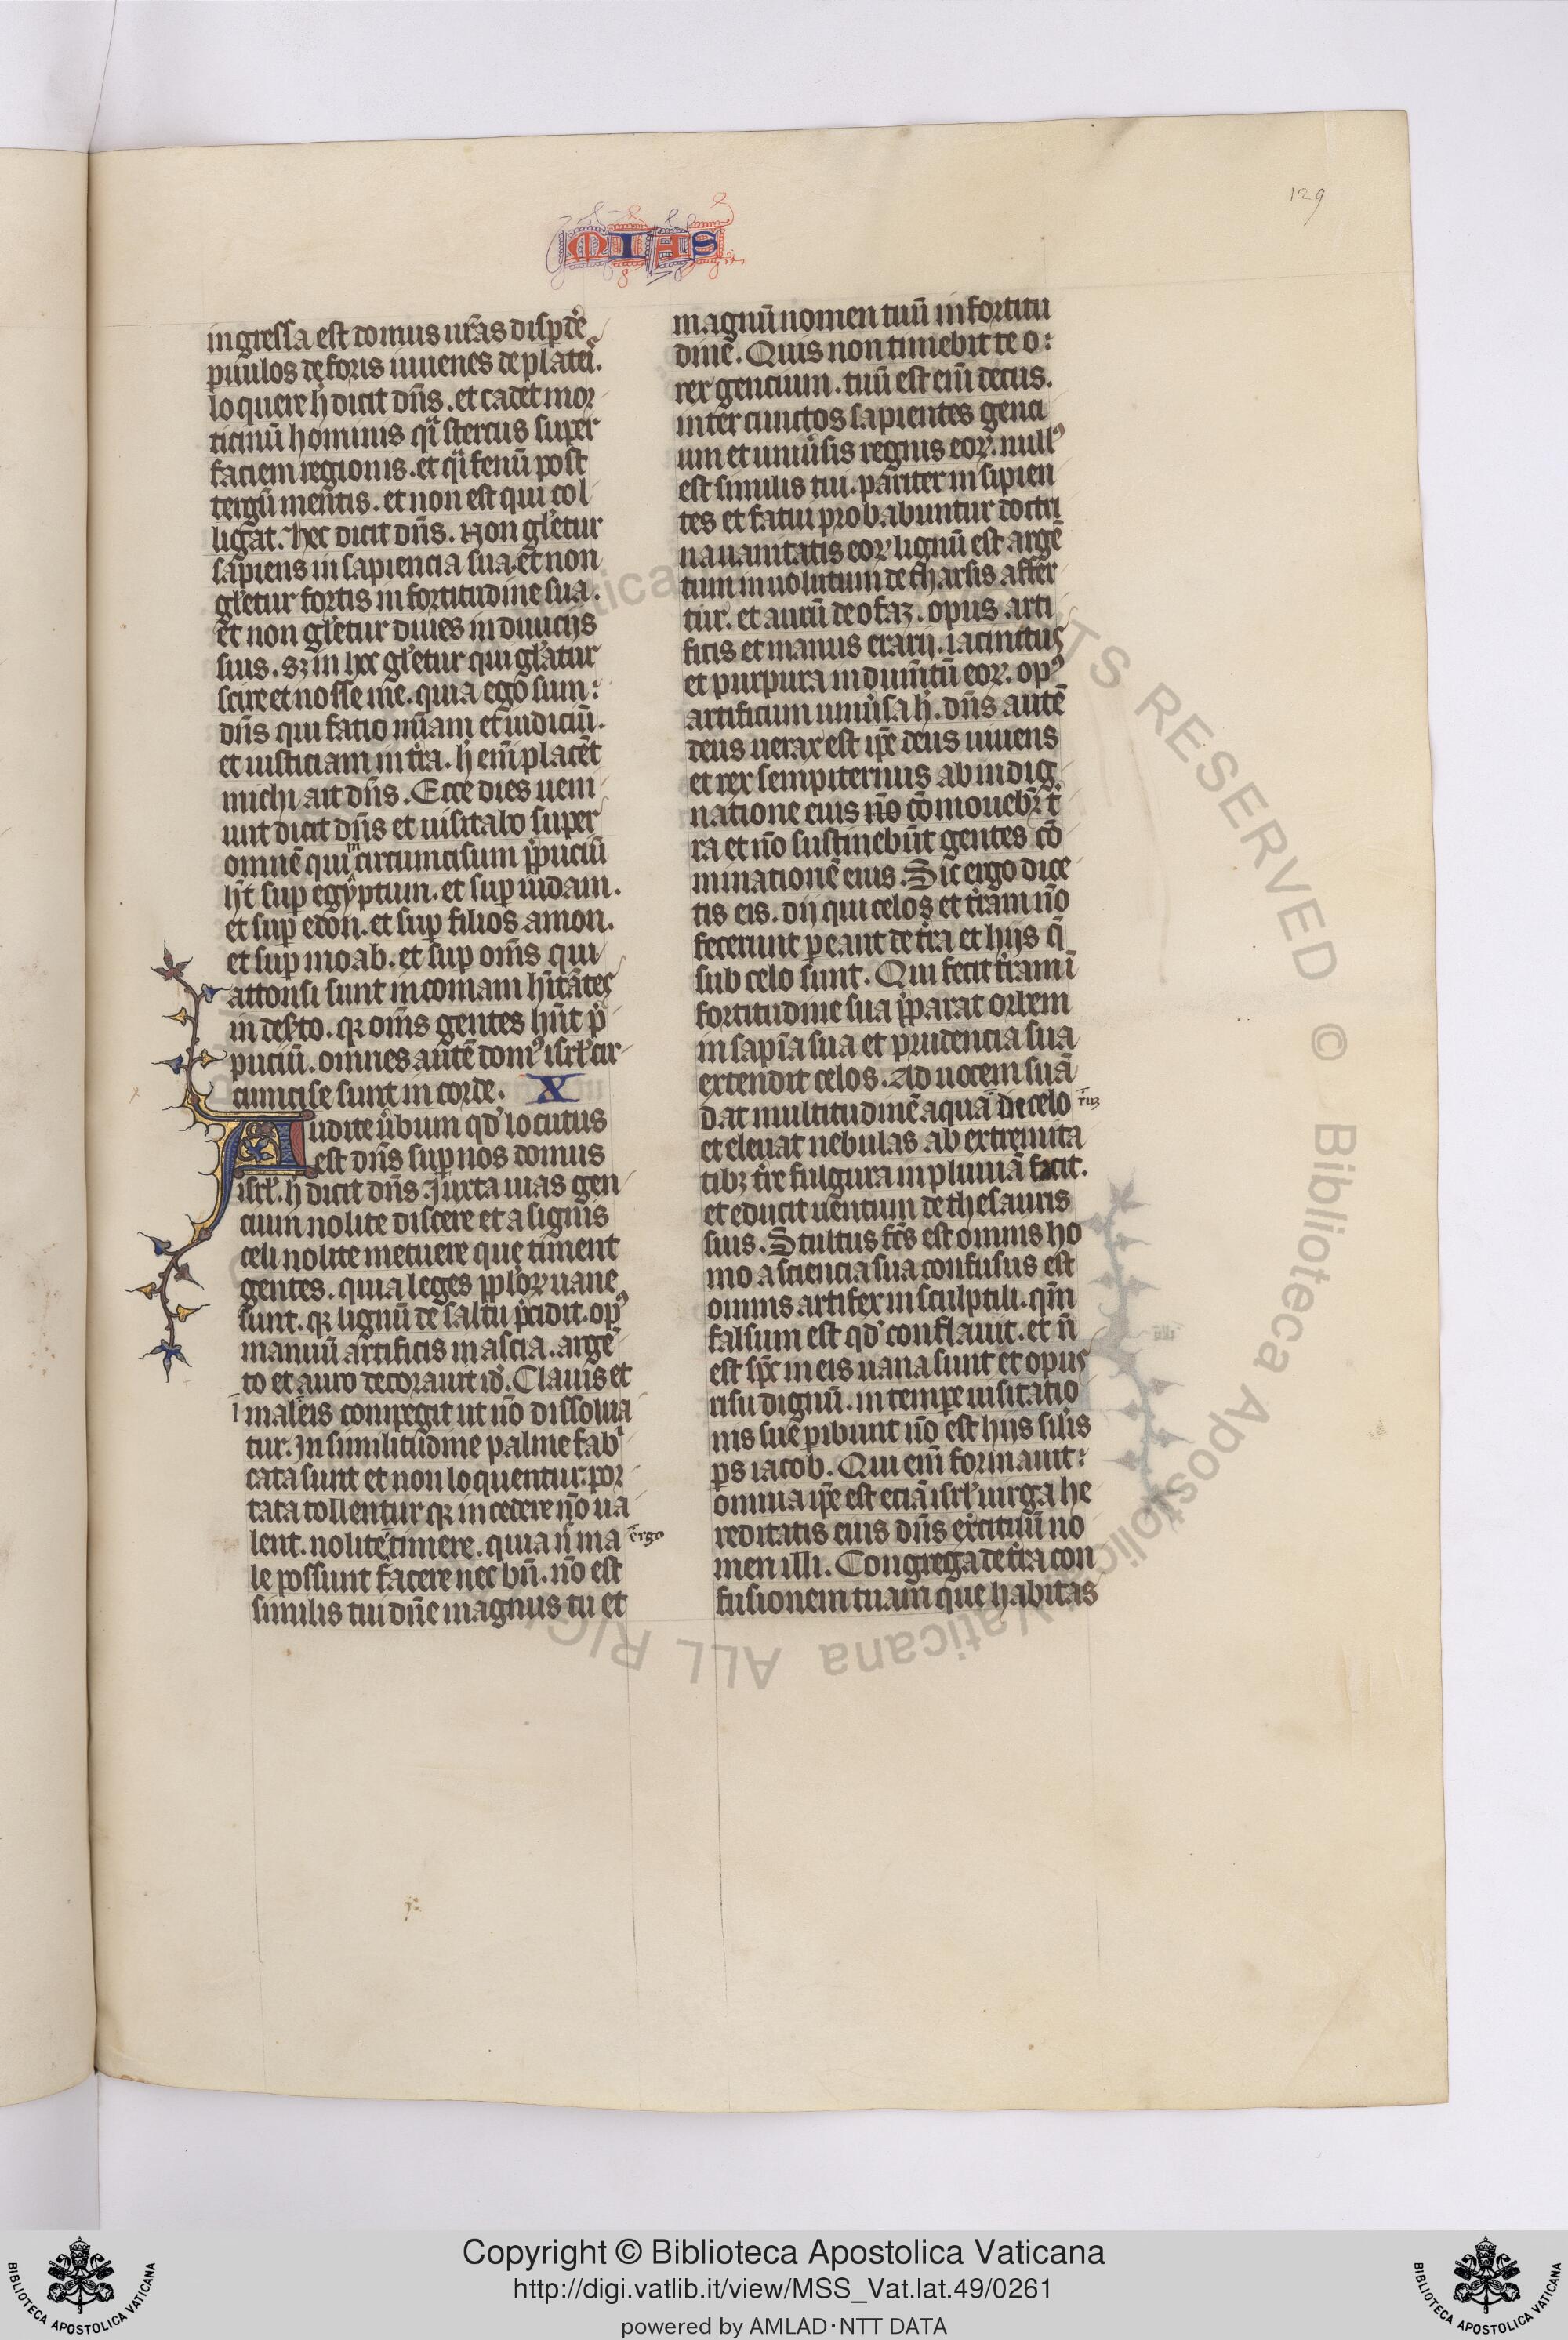 129
MIAS
ingressa est domus ur̃as disp̱de̾
ꝑuulos de foris iuuenes de platei᷒.
loquere h̾ dicit dñs. et cadet mor
ticinū hominis qͣi stercus super
faciem regionis. et qͣi fenū post
tergū mentis. et non est qui col
ligat. hec dicit dñs. Non gl̾etur
sapiens in sapiencia sua. et non
gl̾etur fortis in fortitudine sua.
et non gl̾etur diues in diuicijs
suis. sꝫ in hoc gl̾etur qui gl̾atur
scire et nosse me. quia ego sum:
dñs qui facio mĩam et iudiciū.
et iusticiam in tr̃a. h̾ em̃ placēt
michi ait dñs. Ecce dies ueni
unt dicit dñs et uisitabo super
omnē qui in circumcisum p̾puciū
hñt suꝑ egyptum. et suꝑ iudam.
et suꝑ edon. et suꝑ filios amon.
et suꝑ moab. et suꝑ om̃s qui
attonsi sunt in comam hĩtãtes
in deẜto. qꝛ om̃s gentes hñt p̾
puciū. omnes autē domꝰ isrl̾ cir
cumcise sunt in corde. X
Audite ũbum qd̾ locutus
est dñs suꝑ nos domus
isrl̾. h̾ dicit dñs. Iuxta uias gen
cium nolite discere et a signis
celi nolite metuere que timent
gentes. quia leges pp̃loꝝ uane
sunt. qꝛ lignū de saltu p̾cidit. opꝰ
manuū artificis in ascia. argē
to et auro decorauit id̾. Clauis et
ī malleis compegit ut nō dissolua
tur. In similitudine palme fabͥ
cata sunt et non loquentur. por
tata tollentur qꝛ incedere nō ua
lent. nolite timere. quia n̾ ma ergo
le possunt facere nec bñ. nō est
similis tui dñe magnus tu et
magnū nomen tuū in fortitu
dinē. Quis non timebit te o:
rex gencium. tuū est em̃ decus.
inter cunctos sapientes genci
um et uniũsis regnis eoꝝ. nullꝰ
est similis tui. pariter insipien
tes et fatui probabuntur doctri
na uanitatis eoꝝ lignū est argē
tum inuolutum de tharsis affer
tur. et aurū de ofaz. opus. arti
ficis et manus erarij. iacinctus
et purpura indum̃tū eoꝝ. opꝰ
artificum uniũsa h̾. dñs autē
deus uerax est ip̃e deus uiuens
et rex sempiternus ab indig
natione eius nō cōmouebr̃ t̾
ra et nō sustinebūt gentes cō
minationē eius. Sic ergo dice
tis eis. dij qui celos et tr̃am nō
fecerunt ꝑeant de tr̃a et hijs q̃
sub celo sunt. Qui fecit tr̃am ī
fortitudine sua p̾parat orbem
in sapĩa sua et prudencia sua
extendit celos. Ad uocem suã
dat multitudinē aquaꝝ in celo
et eleuat nebulas ab extremita
tibꝫ tr̃e fulgura in pluuiã facit.
et educit uentum de thesauris
suis. Stultus fc̃s est omnis ho
mo a sciencia sua confusus est
omnis artifex in sculptili. qm̃
falsum est qd̾ conflauit. et ñ
est sp̃c in eis uana sunt et opus
risu dignū. in tempe uisitatio
nis sue ꝑibunt nō est hijs sil̾is
ps iacob. Qui em̃ formauit:
omnia ip̃e est eciã isrl̾ uirga he
reditatis eius dñs ex̾cituū no
men illi. Congrega de tr̃a con
fusionem tuam que habitas
Copyright © Biblioteca Apostolica Vaticana
http://digi.vatlib.it/view/MSS_Vat.lat.49/0261
powered by AMLAD·NTT DATA